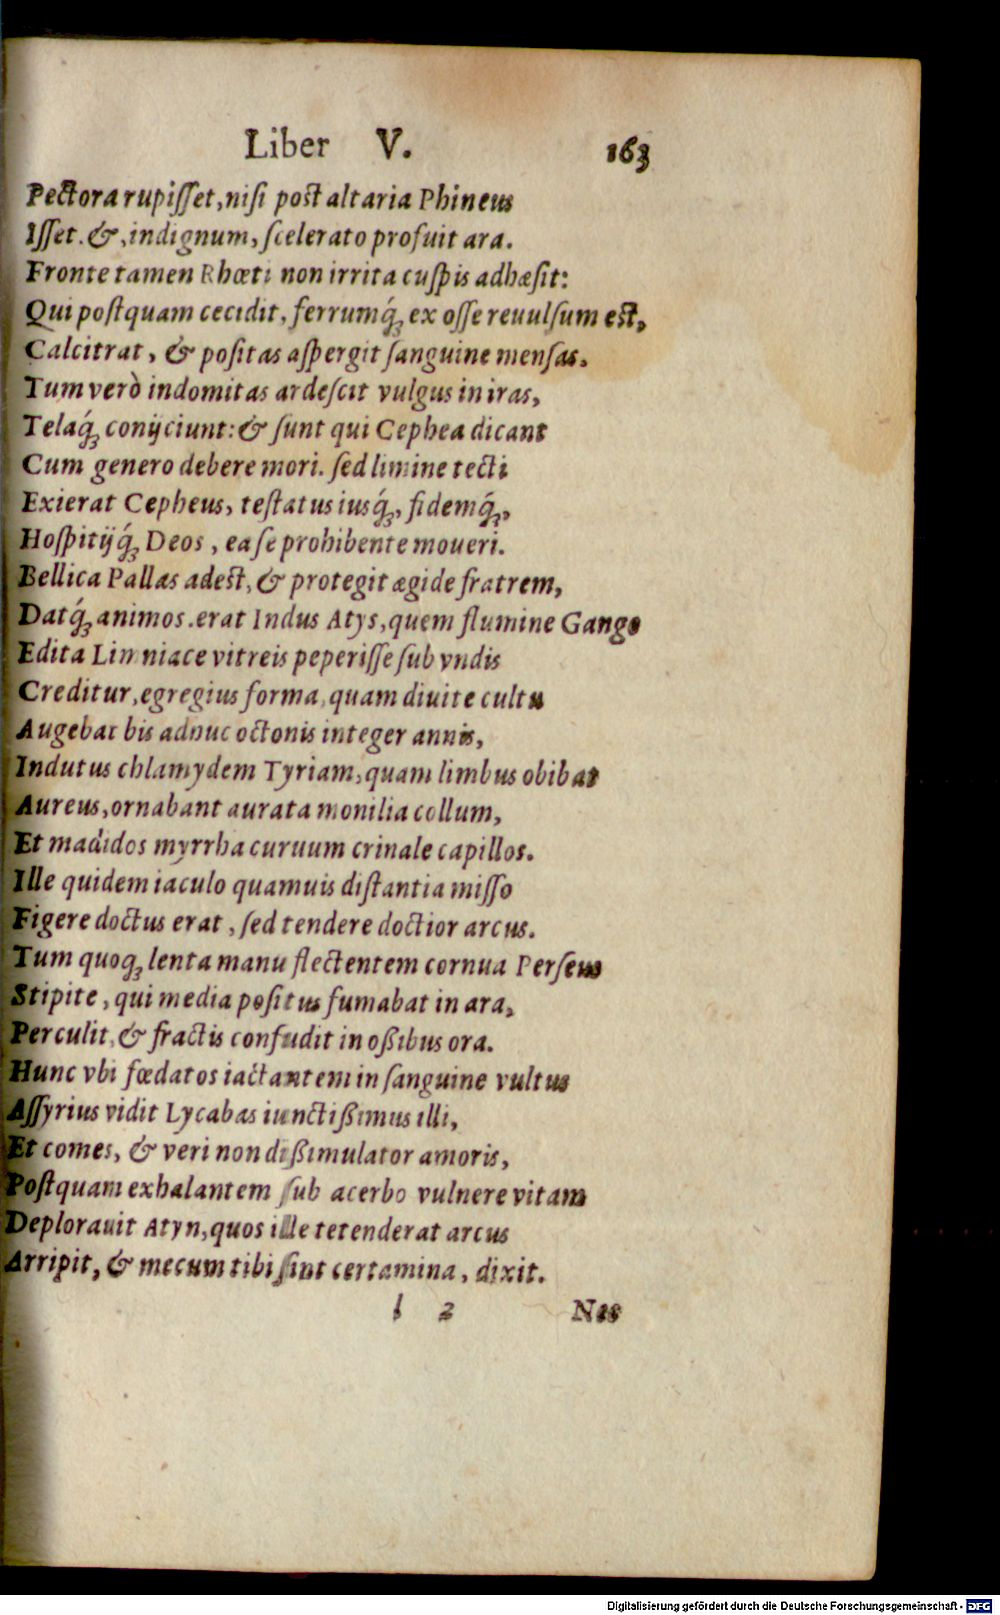 Liber V. 163
Pectora rupiſſet, niſi poſt altaria Phineus
Iſſet. &, indignum, ſcelerato profuit ara.
Fronte tamen Rhœti non irrita cuſpis adhæſit:
Qui poſtquam cecidit, ferrumq́ꝫ ex oſſe reuulſum est,
Calcitrat, & poſitas aſpergit ſanguine menſas.
Tum verò indomitas ardeſcit vulgus in iras,
Telaq́ꝫ conijciunt: & ſunt qui Cephea dicant
Cum genero debere mori. ſed limine tecti
Exierat Cepheus, teſtatus iusq́ꝫ, fidemq́ꝫ,
Hoſpitijq́ꝫ Deos, ea ſe prohibente moueri.
Bellica Pallas adest, & protegit ægide fratrem,
Datq́ꝫ animos. erat Indus Atys, quem flumine Gange
Edita Limniace vitreis peperiſſe ſub vndis
Creditur, egregius forma, quam diuite cultu
Augebat bis adhuc octonis integer annis,
Indutus chlamydem Tyriam, quam limbus obibat
Aureus, ornabant aurata monilia collum,
Et madidos myrrha curuum crinale capillos.
Ille quidem iaculo quamuis diſtantia miſſo
Figere doctus erat, ſed tendere doctior arcus.
Tum quoqꝫ lenta manu flectentem cornua Perſeus
Stipite, qui media poſitus fumabat in ara,
Perculit, & fractis confudit in oßibus ora.
Hunc vbi fœdatos iactantem in ſanguine vultus
Aſſyrius vidit Lycabas iunctißimus illi,
Et comes, & veri non dißimulator amoris,
Poſtquam exhalantem ſub acerbo vulnere vitam
Deplorauit Atyn, quos ille tetenderat arcus
Arripit, & mecum tibi ſint certamina, dixit.
l 2 Nec
Digitalisierung gefördert durch die Deutsche Forschungsgemeinschaft - DFG